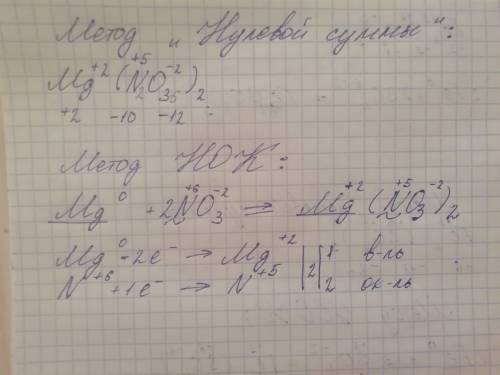 Метод "Нулевой суммы":
Mg⁺² (N⁺⁵₂O⁻²₃₆)₂
+2 -10 -12 =
Метод НОК:
Mg⁰ + 2N⁺⁶O₃⁻² = Mg⁺² (N⁺⁵O₃⁻²)₂
Mg⁰ - 2e⁻ → Mg⁺² |2| 1 в-ль
N⁺⁶ + 1e⁻ → N⁺⁵ 2 ок-ль